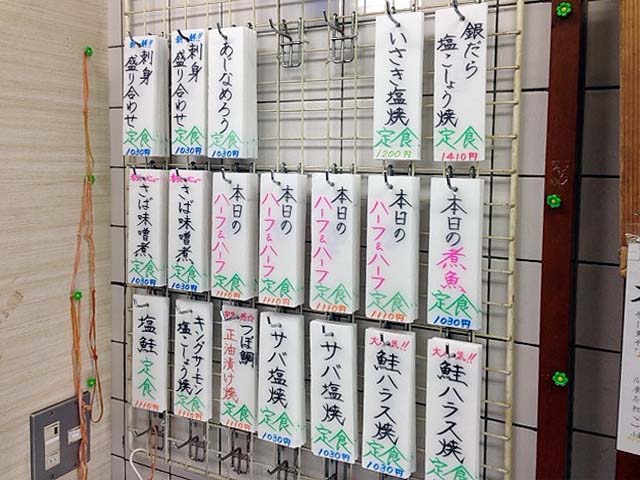 新鮮!!
刺身
盛り合わせ
定食
1030円
新鮮!!
刺身
盛り合わせ
定食
1030円
あじなめろう
定食
1030円
いさき塩焼
定食
1200円
銀だら
塩こしょう焼
定食
1410円
さば味噌煮
定食
1030円
さば味噌煮
定食
1030円
本日の
ハーフ&ハーフ
定食
1110円
本日の
ハーフ&ハーフ
定食
1110円
本日の
ハーフ&ハーフ
定食
1110円
本日の
ハーフ&ハーフ
定食
1110円
本日の
煮魚
定食
1030円
塩鮭
定食
1110円
キングサーモン
塩こしょう焼
定食
1110円
つぼ鯛
正油漬け焼
定食
1110円
サバ塩焼
定食
1030円
サバ塩焼
定食
1030円
大人気!!
鮭ハラス焼
定食
1030円
大人気!!
鮭ハラス焼
定食